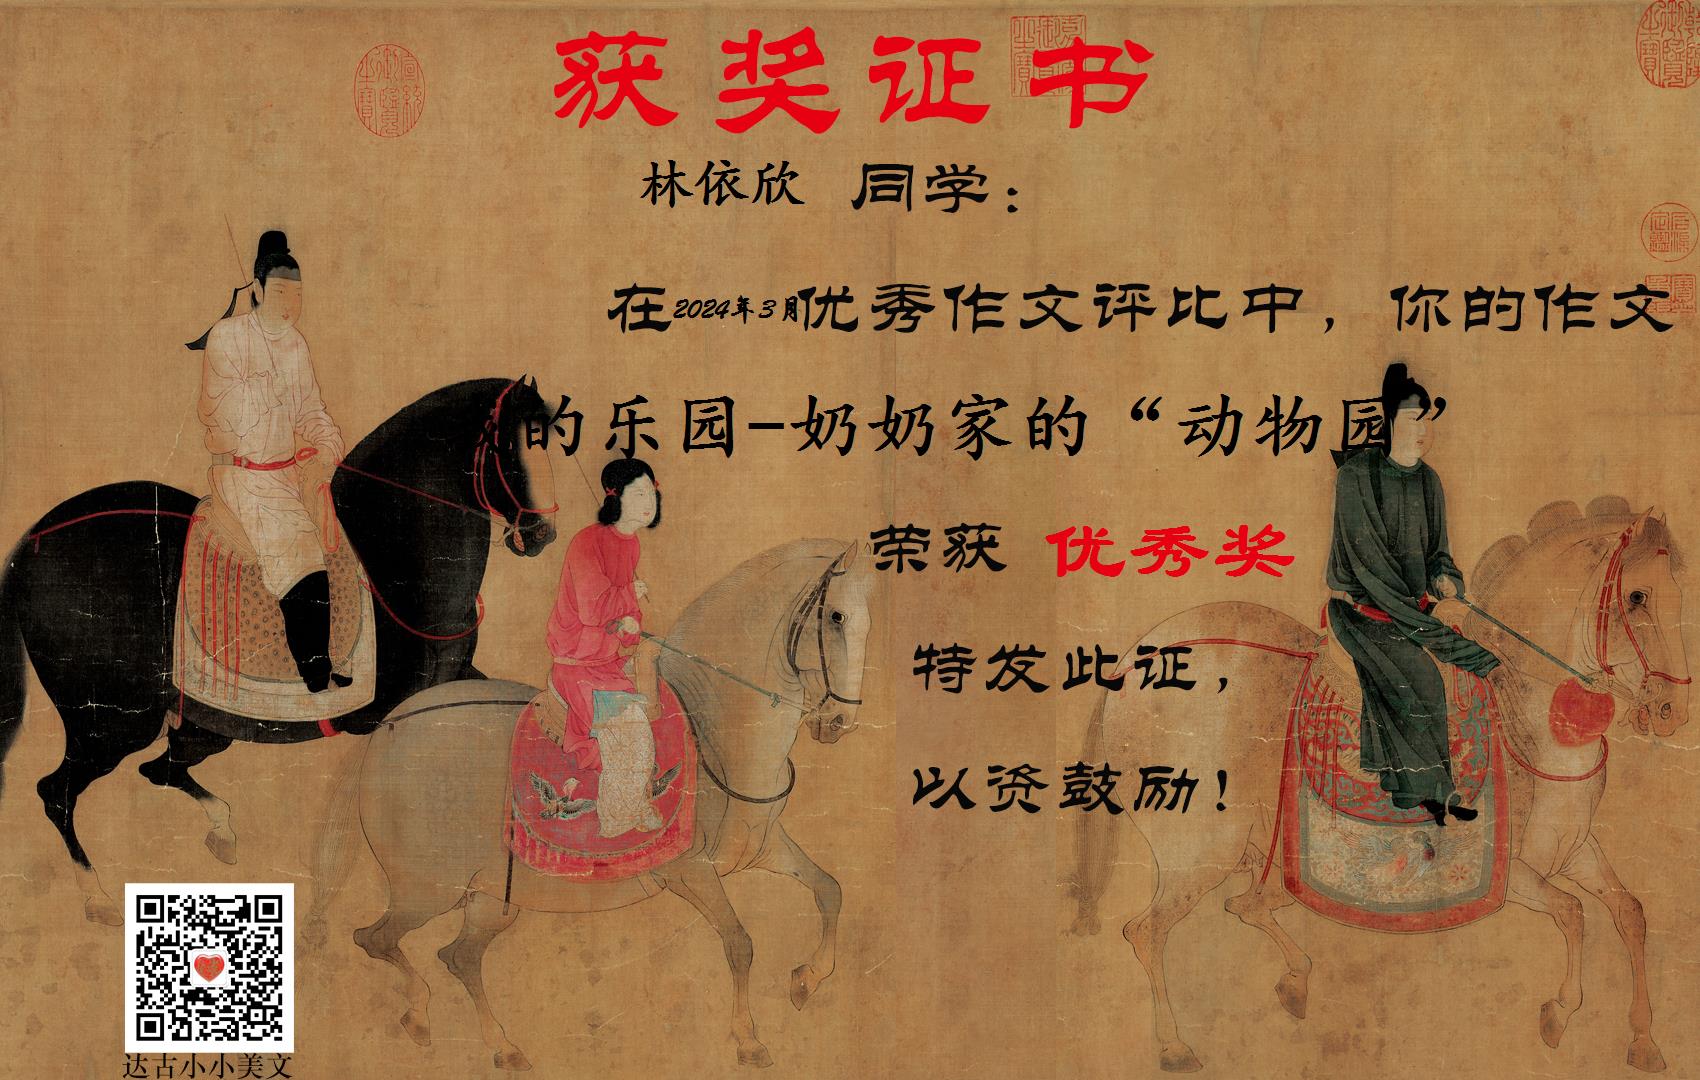 获奖证书
林依欣 同学：
在2024年3月优秀作文评比中，你的作文
的乐园-奶奶家的“动物园”
荣获 优秀奖
特发此证，
以资鼓励！
达古小小美文